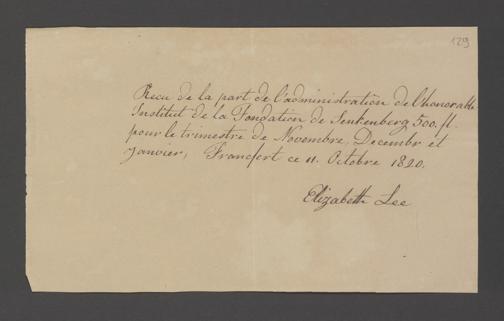 129
Recu de la part de l'administration de l'honorable
Institut de la Fondation de Senkenberg 500. fl.
pour le trimestre de Novembre, Decembr et
Janvier, Francfort ce 11. Octobre 1820.
Elizabeth Lee